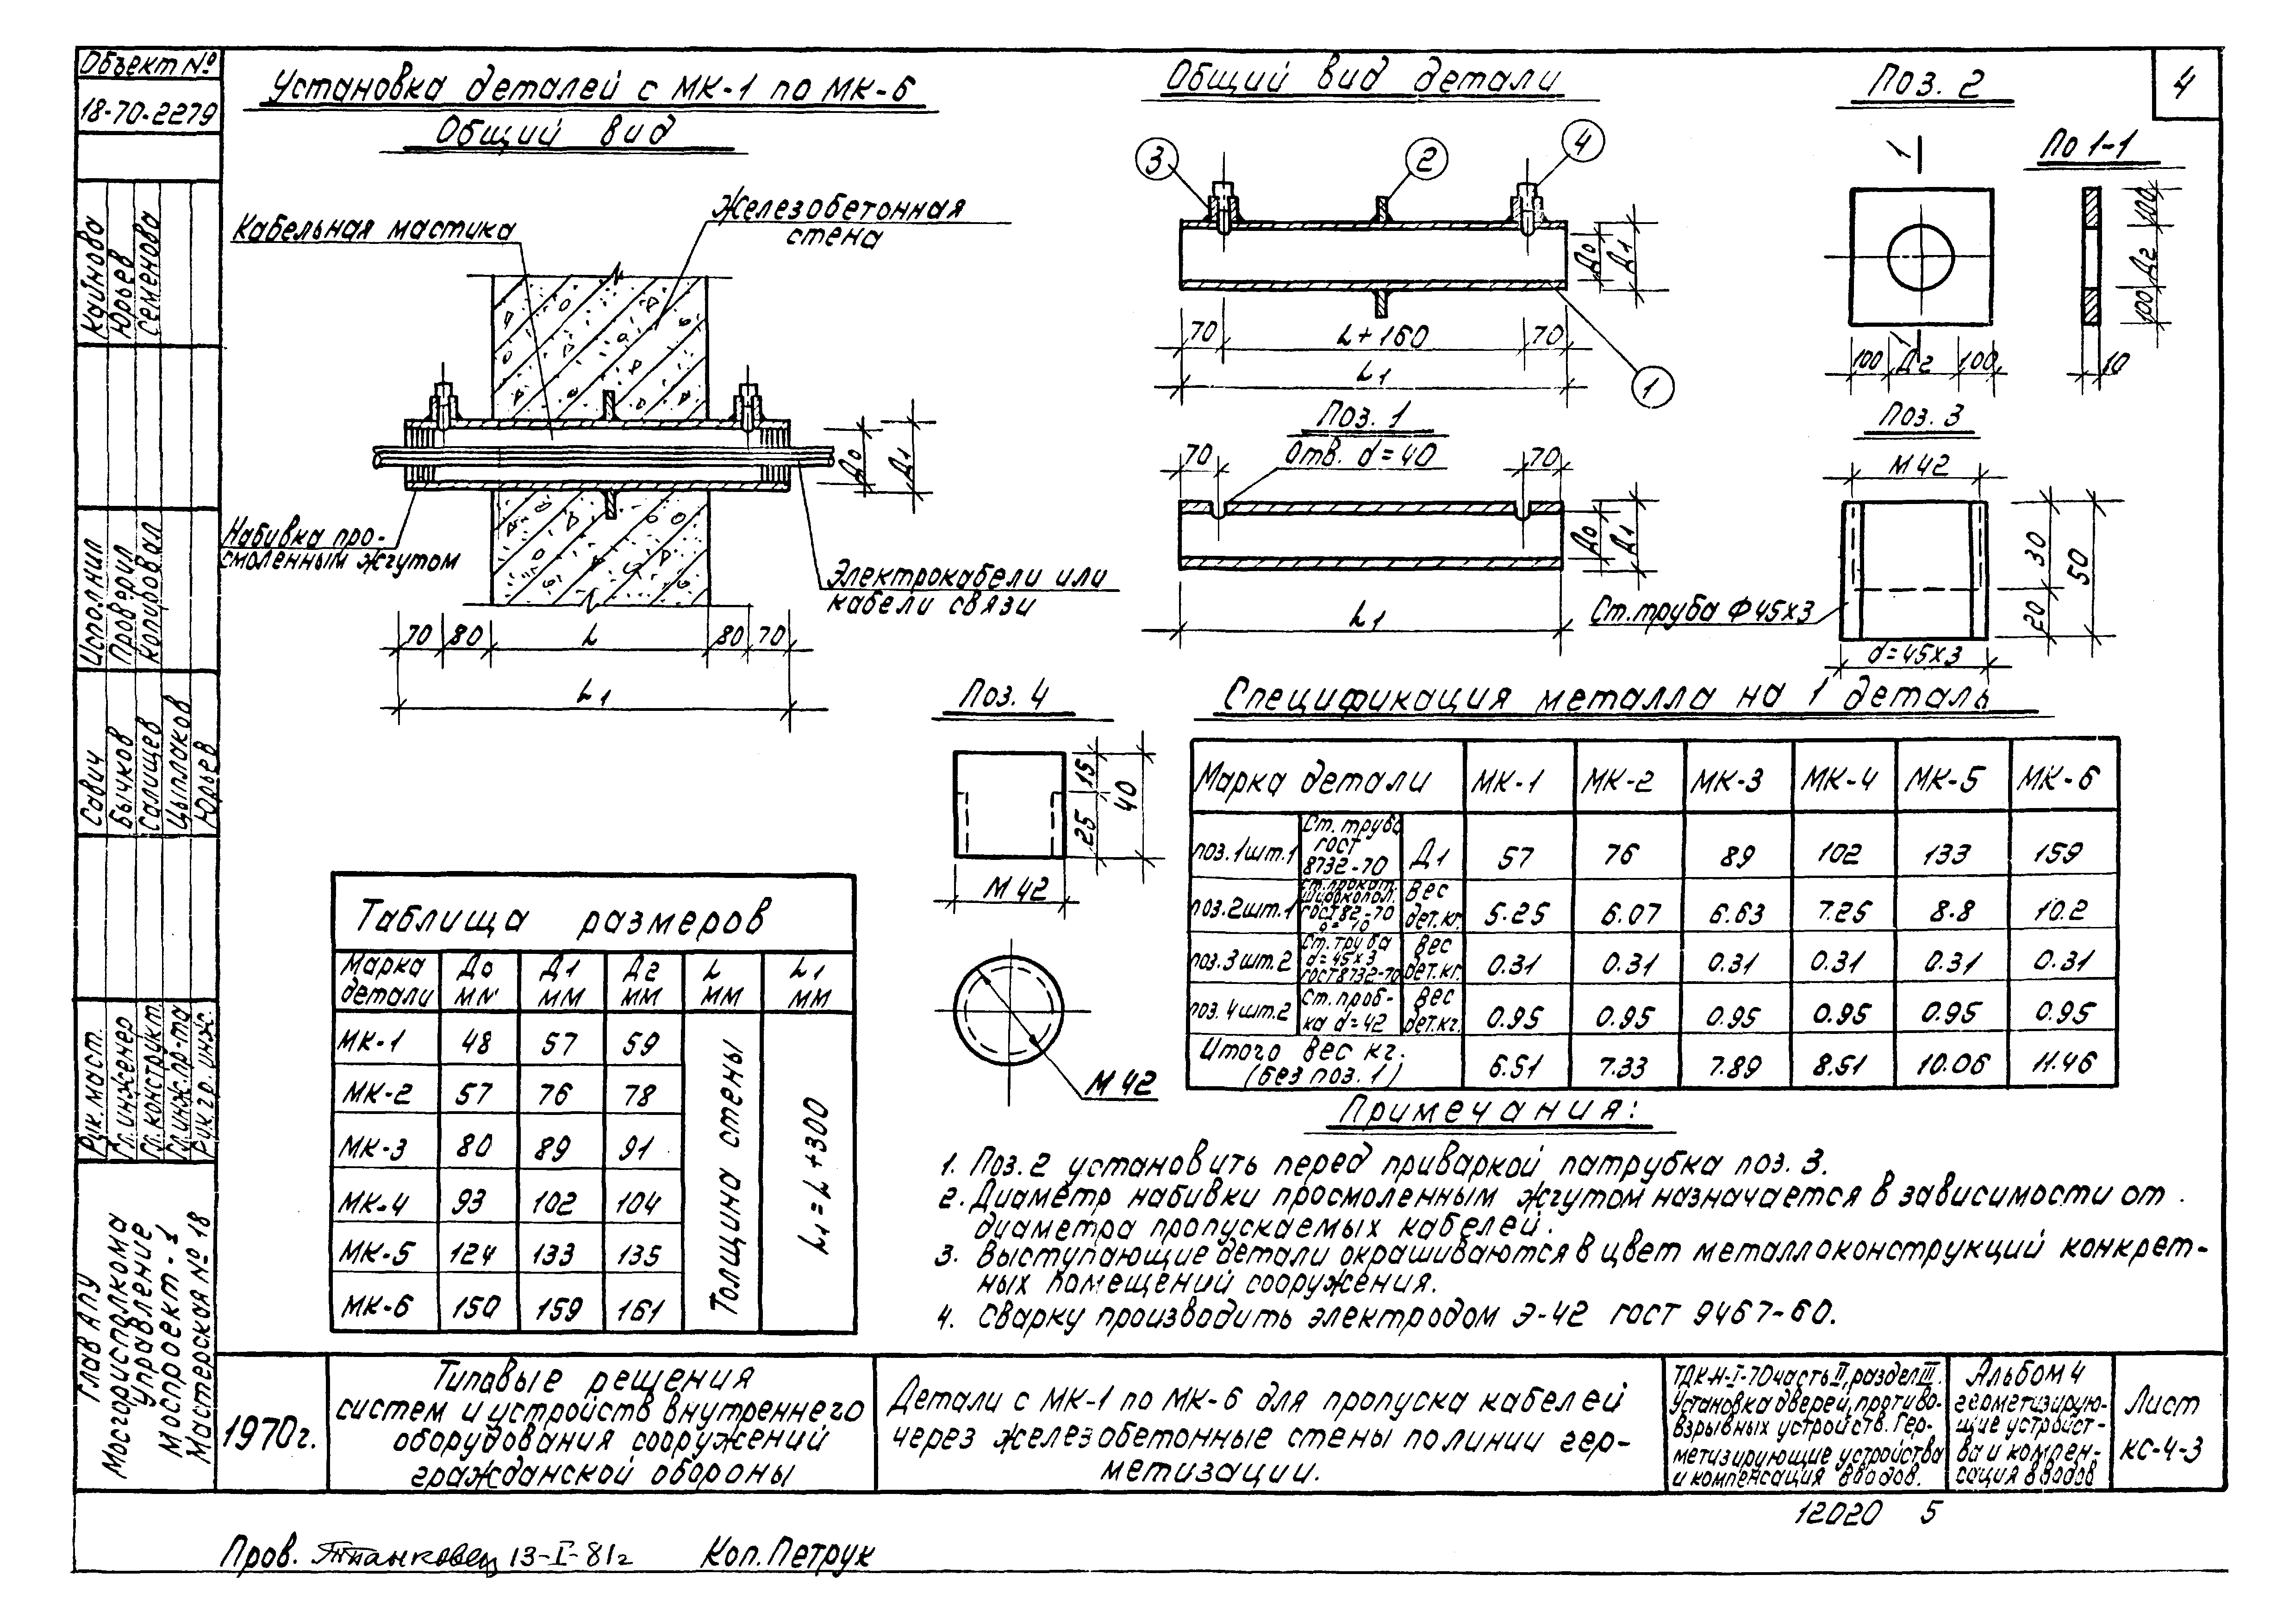 Объект №
18-70-2279
4
Установка деталей с МК-1 по МК-6
Общий вид
Кабельная мастика
Железобетонная
стена
Набивка про-
смоленным жгутом
Электрокабели или
кабели связи
До
Д1
70 80 L 80 70
L1
Общий вид детали
3 2 4
До
Д1
70 L+160 70
L1
1
Поз. 1
Отв. d=40
70 70
До
Д1
L1
Поз. 2
1
1
100 Д2 100
По 1-1
100
Д2
100
10
Поз. 3
М42
30
20
50
Ст.труба Ф45х3
d=45х3
Поз. 4
15
25
40
М42
М42
Таблица размеров
Марка детали До мм Д1 мм Д2 мм L мм L1 мм
МК-1 48 57 59
МК-2 57 76 78
МК-3 80 89 91
МК-4 93 102 104
МК-5 124 133 135
МК-6 150 159 161
Толщина стены
L1=L+300
Спецификация металла на 1 деталь
Марка детали МК-1 МК-2 МК-3 МК-4 МК-5 МК-6
поз.1шт.1 Ст. труба гост 8732-70 Д1 57 76 89 102 133 159
поз.2шт.1 Ст.прокат. широкопол. гост 82-70 Вес дет.кг. 5.25 6.07 6.63 7.25 8.8 10.2
поз.3шт.2 Ст.труба d=45х3 гост8732-70 Вес дет.кг. 0.31 0.31 0.31 0.31 0.31 0.31
поз.4шт.2 Ст. проб-ка d=42 Вес дет.кг. 0.95 0.95 0.95 0.95 0.95 0.95
Итого вес кг. (без поз. 1) 6.51 7.33 7.89 8.51 10.06 11.46
Примечания:
1. Поз. 2 установить перед приваркой патрубка поз. 3.
2. Диаметр набивки просмоленным жгутом назначается в зависимости от
диаметра пропускаемых кабелей.
3. Выступающие детали окрашиваются в цвет металлоконструкций конкрет-
ных помещений сооружения.
4. Сварку производить электродом Э-42 гост 9467-60.
Кайнова
Юрьев
Семенова
Исполнил
Проверил
Копировал
Савич
Бычков
Салищев
Цыплаков
Юрьев
Рук.маст.
Гл.инженер
Гл.конструкт.
Гл.инж.пр-та
Рук.гр.инж.
Глав АПУ
Мосгорисполкома
Управление
Моспроект-1
Мастерская №18
1970г.
Типовые решения
систем и устройств внутреннего
оборудования сооружений
гражданской обороны
Детали с МК-1 по МК-6 для пропуска кабелей
через железобетонные стены по линии гер-
метизации.
ТДК-Н-I-70 часть II, раздел III.
Установка дверей, противо-
взрывных устройств. Гер-
метизирующие устройства
и компенсация вводов.
Альбом 4
герметизирую-
щие устройст-
ва и компен-
сация вводов
Лист
КС-4-3
12020 5
Пров. 13-I-81г Коп. Петрук